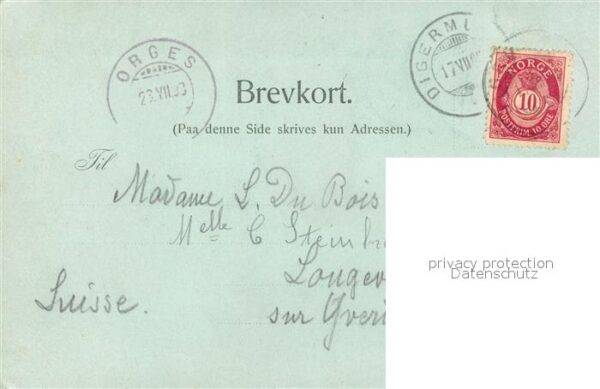 ORGES
23.VII.03
DIGERMU
17 VII
NORGE
10
POSTFRIM. 10 ØRE
Brevkort.
(Paa denne Side skrives kun Adressen.)
Til
Madame L. Du Bois
Melle C Stein
Longev
Suisse.
sur Yver
privacy protection
Datenschutz